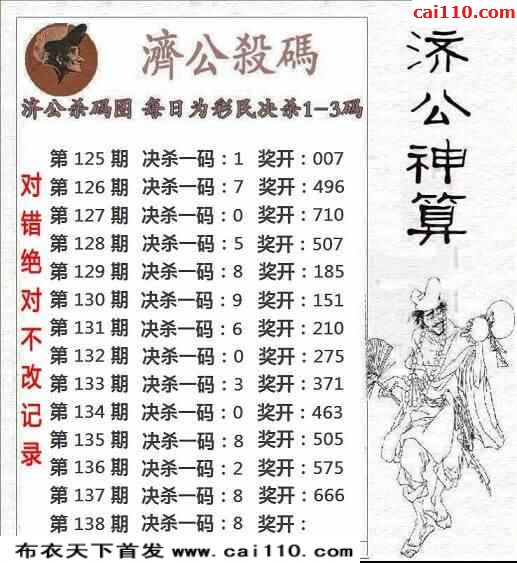 cai110.com
濟公殺碼
济公杀码图 每日为彩民决杀1-3码
济公神算
对错绝对不改记录
第 125 期 决杀一码：1 奖开：007
第 126 期 决杀一码：7 奖开：496
第 127 期 决杀一码：0 奖开：710
第 128 期 决杀一码：5 奖开：507
第 129 期 决杀一码：8 奖开：185
第 130 期 决杀一码：9 奖开：151
第 131 期 决杀一码：6 奖开：210
第 132 期 决杀一码：0 奖开：275
第 133 期 决杀一码：3 奖开：371
第 134 期 决杀一码：0 奖开：463
第 135 期 决杀一码：8 奖开：505
第 136 期 决杀一码：2 奖开：575
第 137 期 决杀一码：8 奖开：666
第 138 期 决杀一码：8 奖开：
布衣天下首发 www.cai110.com